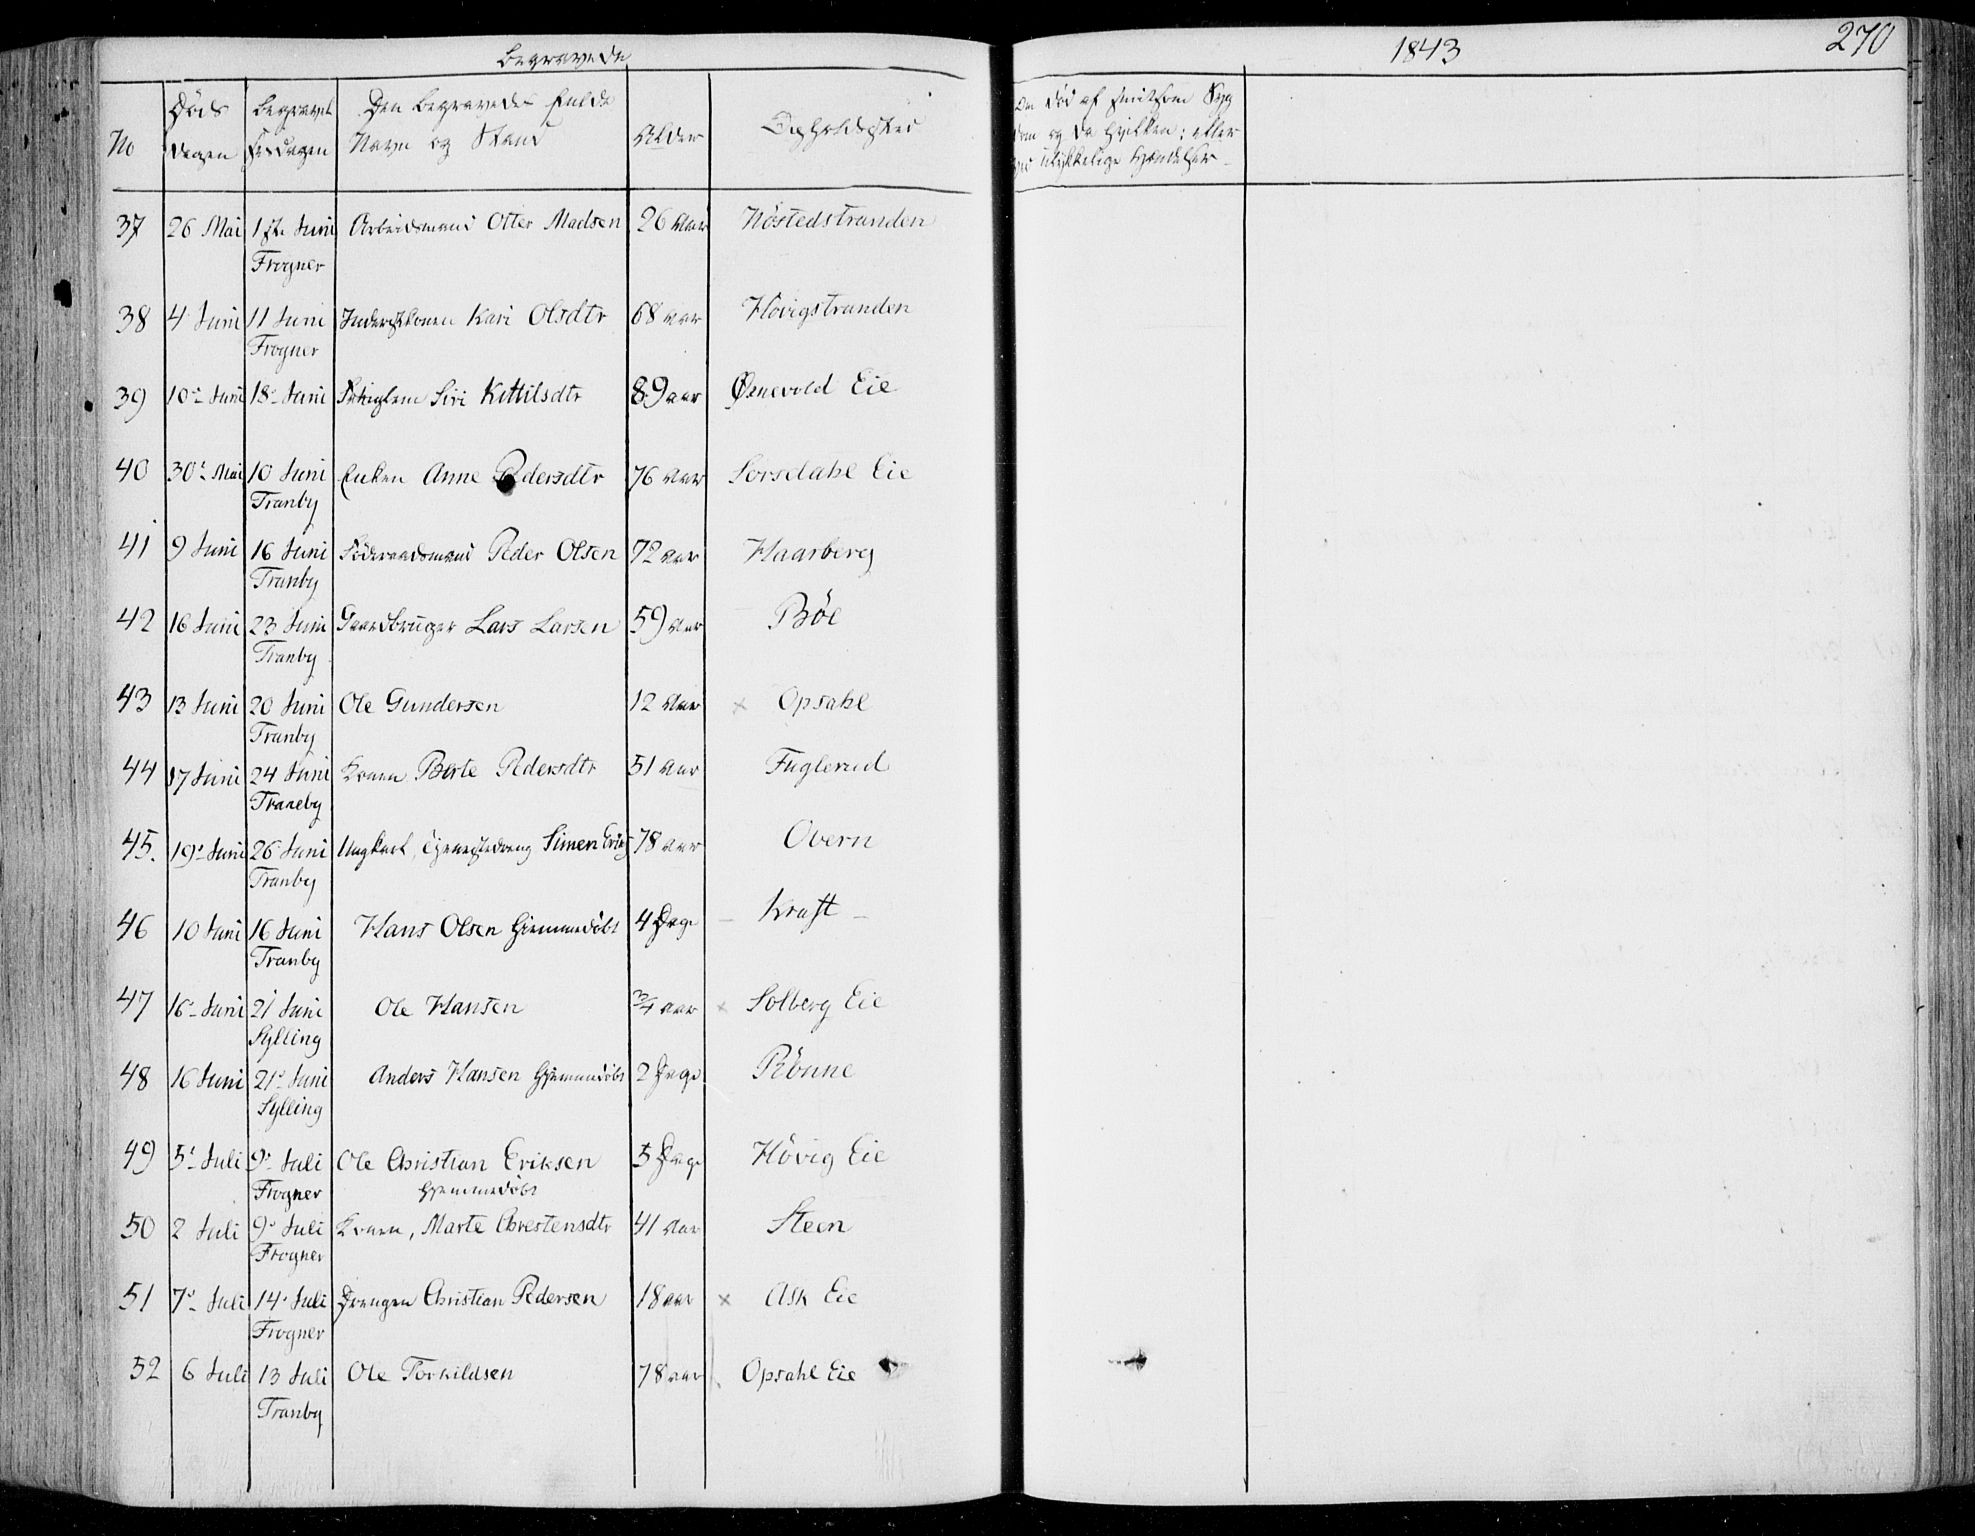 Begravede
1843
270
No
Døds
dagen
Begravel
sesdagen
Den Begravedes fulde
Navn og Stand
Alder
Opholdssted
Om død af smitsom Syg
dom og da hvilken; eller
ved ulykkelige Hændelser
37 26 Mai 1ste Juni Arbeidsmand Otter Madsen 26 Aar Nöstedstranden
Frogner
38 4 Juni 11 Juni Inderstkonen Kari Olsdtr 68 aar Hövigstranden
Frogner
39 10- Juni 18- Juni Siri Kittilsdtr 89 aar Eie
40 30- Mai 10 Juni Enken Anne Pedersdtr 76 aar Sorsdahl Eie
Tranby
41 9 Juni 16 Juni Föderaadsmand Peder Olsen 72 aar Haarberg
Tranby
42 16 Juni 23 Juni Gaardbruger Lars Larsen 59 aar Böe
Tranby
43 13 Juni 20 Juni Ole Gundersen 12 Aar × Opsahl
Tranby
44 17 Juni 24 Juni Konen Berte Pedersdtr 51 Aar Fuglerud
Traneby
45. 19- Juni 26 Juni Ungkarl, Simen 78 aar Overn
Tranby
46 10 Juni 16 Juni Hans Olsen hjemmedöbt 4 Dage – Kraft –
Tranby
47 16- Juni 21 Juni Ole Hansen 3/4 aar × Solberg Eie
Sylling
48 16 Juni 21- Juni Anders Hansen hjemmedöbt 2 Dage Rönne
Sylling
49 5- Juli 9- Juli Ole Christian Eriksen 5 Dage Hövig Eie
Frogner hjemmedöbt
50 2 Juli 9- Juli Konen, Marte Chrestensdtr 41 Aar Steen
Frogner
51 7- Juli 14- Juli Drengen Christian Pedersen 18 aar × Ask Eie
Frogner
52 6 Juli 13 Juli Ole Torkildsen 78 aar Opsahl Eie
Tranby